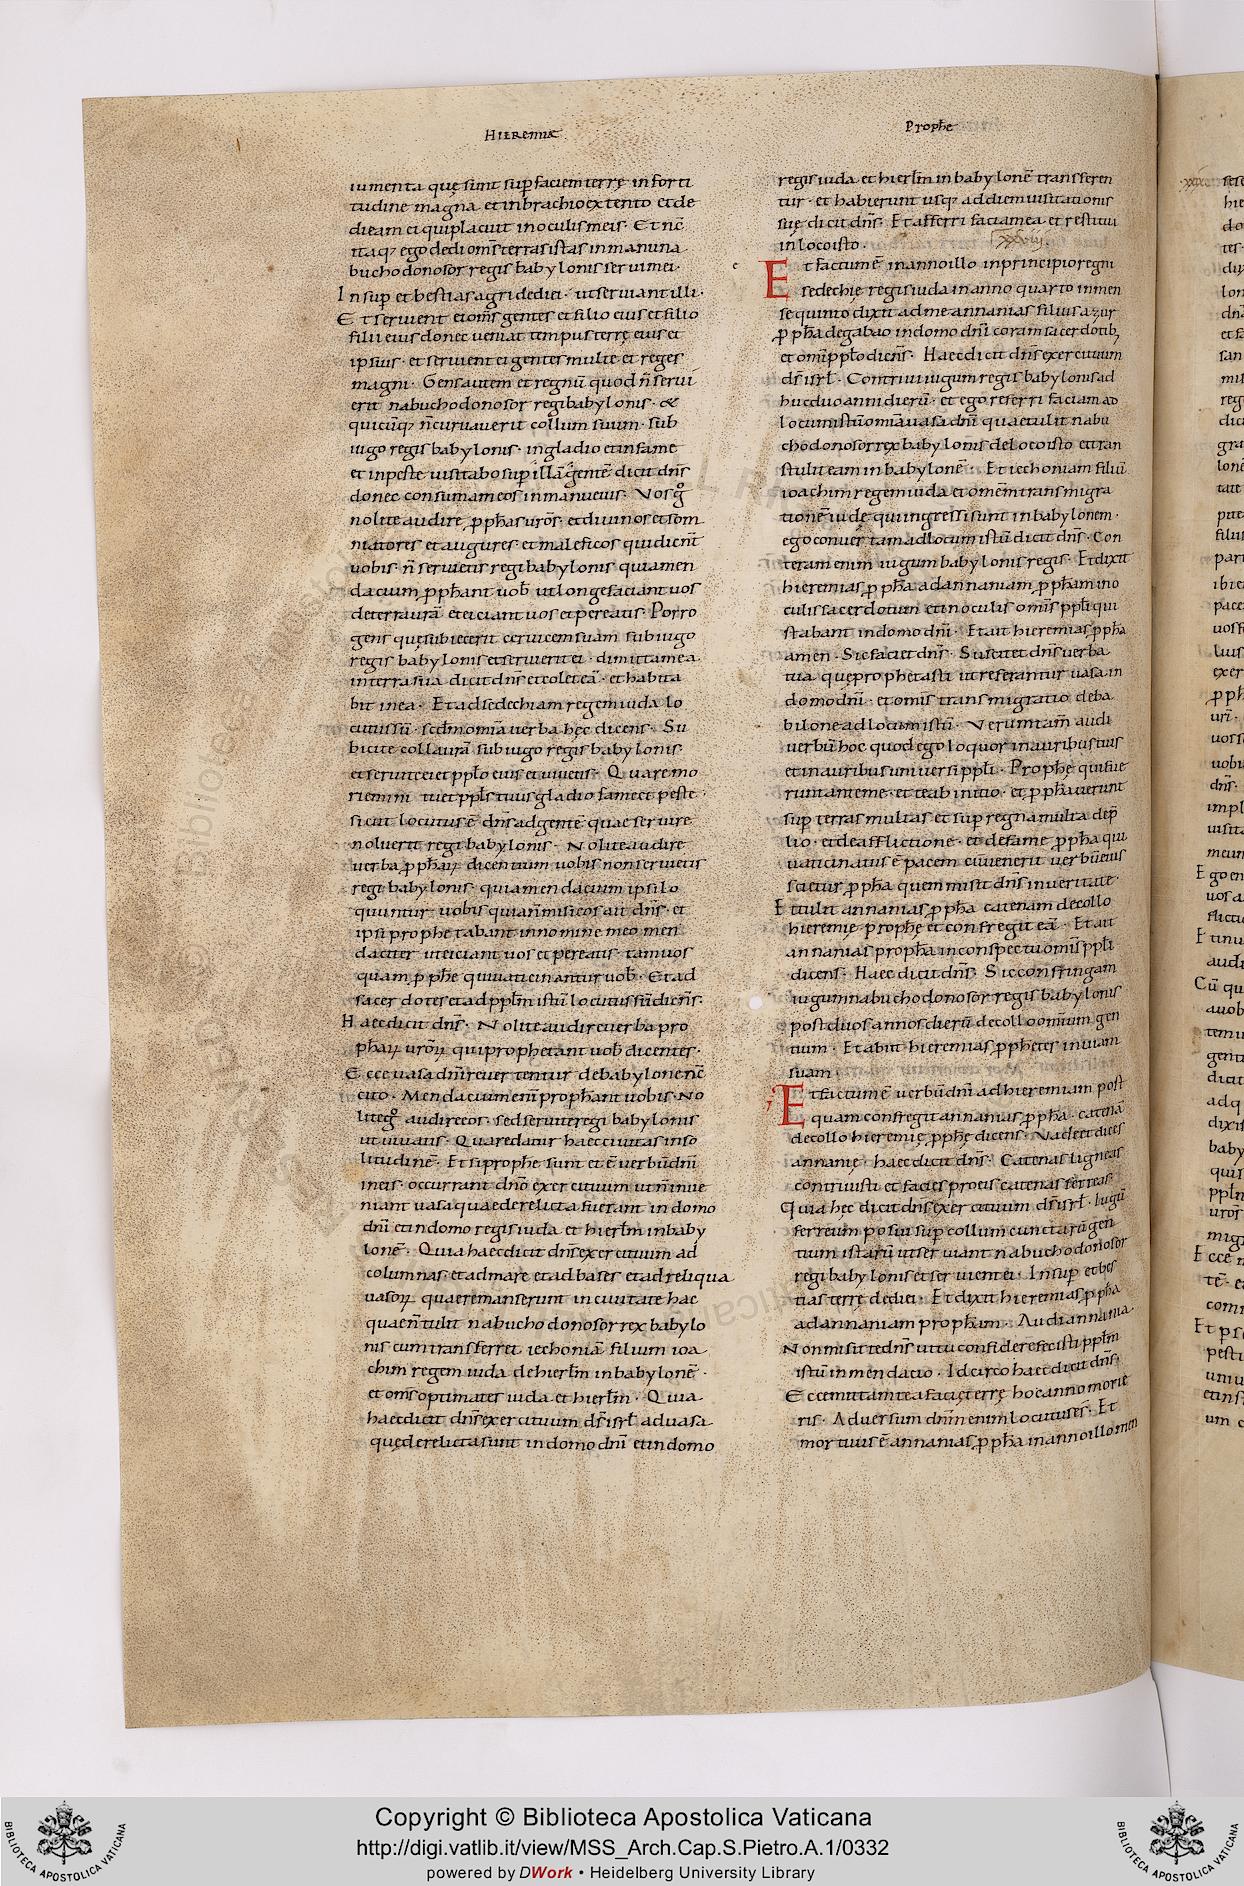 HIEREMIAE
iumenta quę sunt sup̄ faciem terrę in forti
tudine magna et in brachio extento et de
di eam ei qui placuit in oculis meis · Et nc̄
itaq; ego dedi om̄s terras istas in manu na
buchodonosor regis babylonis serui mei ·
Insup̄ et bestias agri dedi ei · ut seruiant illi ·
Et seruient ei om̄s gentes et filio eius et filio
filii eius donec ueniat tempus terrę eius et
ipsius · et seruient ei gentes multe et reges
magni · Gens autem et regnū quod n̄ serui
erit nabuchodonosor regi babylonis · &
quicūq; n̄ curuauerit collum suum · sub
iugo regis babylonis · in gladio et in fame
et in peste uisitabo sup̄ illā gentē dicit dn̄s
donec consumam eos in manu eius · Vos g̊
nolite audire p̱phas uros̄ · et diuinos et som
niatores et augures · et maleficos qui dicen̄t
uobis · n̄ seruietis regi babylonis quia men
dacium p̱phant uob̄ ut longe faciant uos
de terra urā · et eiciant uos et pereatis · Porro
gens quę subiecerit ceruicem suam sub iugo
regis babylonis et seruierit ei · dimittam ea
in terra sua dicit dn̄s et colet eā · et habita
bit in ea · Et ad sedechiam regem iuda lo
cutus sū · scd̄m om̄ia uerba hęc dicens · Su
bicite colla urā sub iugo regis babylonis
et seruite ei et pplo eius et uiuetis · Quare mo
riemini tu et ppl̄s tuus gladio fame et peste ·
sicut locutus ē dn̄s ad gentē quae seruire
noluerit regi babylonis · Nolite audire
uerba p̱pharꝝ dicentium uobis non seruietis
regi babylonis · quia mendacium ipsi lo
quuntur uobis quia n̄ misi eos ait dn̄s · et
ipsi prophetabant in nomine meo men
daciter · ut eiciant uos et pereatis · tam uos
quam p̱phe qui uaticinantur uob̄ · Et ad
sacerdotes et ad ppl̄m istū locutus sū dicen̄s ·
Haec dicit dn̄s · Nolite audire uerba pro
pharꝝ urorꝝ̄ qui prophetant uob̄ dicentes ·
Ecce uasa dn̄i reuertentur de babylone nc̄
cito · Mendacium enī prophant uobis · No
lite g̊ audire eos · sed seruite regi babylonis
ut uiuatis · Quare datur haec ciuitas in so
litudinē · Et si prophe sunt et ē uerbū dn̄i
in eis · occurrant dn̄o exercituum ut n̄ inue
niant uasa quae derelicta fuerant in domo
dn̄i et in domo regis iuda et hierl̄m in baby
lonē · Quia haec dicit dn̄s exercituum ad
columnas et ad mare et ad bases et ad reliqua
uasorꝝ quae remanserunt in ciuitate hac
quae n̄ tulit nabuchodonosor rex babylo
nis cum transferret iechoniā filium ioa
chim regem iuda de hierl̄m in babylonē ·
et om̄s optimates iuda et hierl̄m · Quia
haec dicit dn̄s exercituum ds̄ isrl̄ ad uasa
quę derelicta sunt in domo dn̄i et in domo
Prophē
regis iuda et hierl̄m in babylonē transferen
tur · et habierunt usq; ad diem uisitationis
suę dicit dn̄s · Et afferri faciam ea et restitui
in loco isto · xxviii
Et factum ē in anno illo in principio regni
sedechie regis iuda in anno quarto in men
se quinto dixit ad me annanias filius azur
p̱pha de gabao in domo dn̄i coram sacerdotib;
et om̄i pplo dicen̄s · Haec dicit dn̄s exercituum
ds̄ isrl̄ · Contriui iugum regis babylonis ad
huc duo anni dierū · et ego referri faciam ad
locum istū om̄ia uasa dn̄i quae tulit nabu
chodonosor rex babylonis de loco isto et tran
stulit eam in babylonē · Et iechoniam filiū
ioachim regem iuda et omēm transmigra
tionē iudę qui ingressi sunt in babylonem ·
ego conuertam ad locum istū dicit dn̄s · Con
teram enim iugum babylonis regis · Et dixit
hieremias p̱pha ad annaniam p̱pham in o
culis sacerdotum et in oculis om̄is ppl̄i qui
stabant in domo dn̄i · Et ait hieremias p̱pha
amen · Sic faciet dn̄s · Suscitet dn̄s uerba
tua quę prophetasti ut referantur uasa in
domo dn̄i · et om̄is transmigratio de ba
bilone ad locum istū · Veruntam̄ audi
uerbū hoc quod ego loquor in auribus tuis
et in auribus uniuersi ppl̄i · Prophę qui fue
runt ante me · et te ab initio · et p̱phauerunt
sup̄ terras multas et sup̄ regna multa de p̄
lio · et de afflictione · et de fame p̱pha qui
uaticinatus ē pacem cū uenerit uerbū eius
scietur p̱pha quem misit dn̄s in ueritate ·
Et tulit annanias p̱pha catenam de collo
hieremię prophę et confregit eā · Et ait
annanias propha in conspectu om̄is ppl̄i
dicens · Haec dicit dn̄s · Sic confringam
iugum nabuchodonosor regis babylonis
post duos annos dierū de collo omnium gen
tium · Et abiit hieremias p̱pheters in uiam
suam ·
Et factum ē uerbū dn̄i ad hieremiam post
quam confregit annanias p̱pha · catenā
de collo hieremię p̱phę dicens · Vade et dices
annanię · haec dicit dn̄s · Catenas ligneas
contriuisti et facies pro eis catenas ferreas ·
Quia hęc dicit dn̄s exercituum ds̄ isrl̄ · Iugū
ferreum posui sup̄ collum cunctarū gen
tium istarū ut seruiant nabuchodonosor
regi babylonis et seruient ei · Insup̄ et bes
tias terrę dedi ei · Et dixit hieremias p̱pha
ad annaniam propham · Audi annania ·
Non misit te dn̄s et tu confidere fecisti ppl̄m
istū in mendacio · Idcirco haec dicit dn̄s ·
Ecce mittam te a facię terrę hoc anno morie
ris · Aduersum dn̄m enim locutus es̄ · Et
mortuus ē annanias p̱pha in anno illo men
Copyright © Biblioteca Apostolica Vaticana
http://digi.vatlib.it/view/MSS_Arch.Cap.S.Pietro.A.1/0332
powered by DWork • Heidelberg University Library
BIBLIOTECA APOSTOLICA VATICANA
BIBLIOTECA APOSTOLICA VATICANA